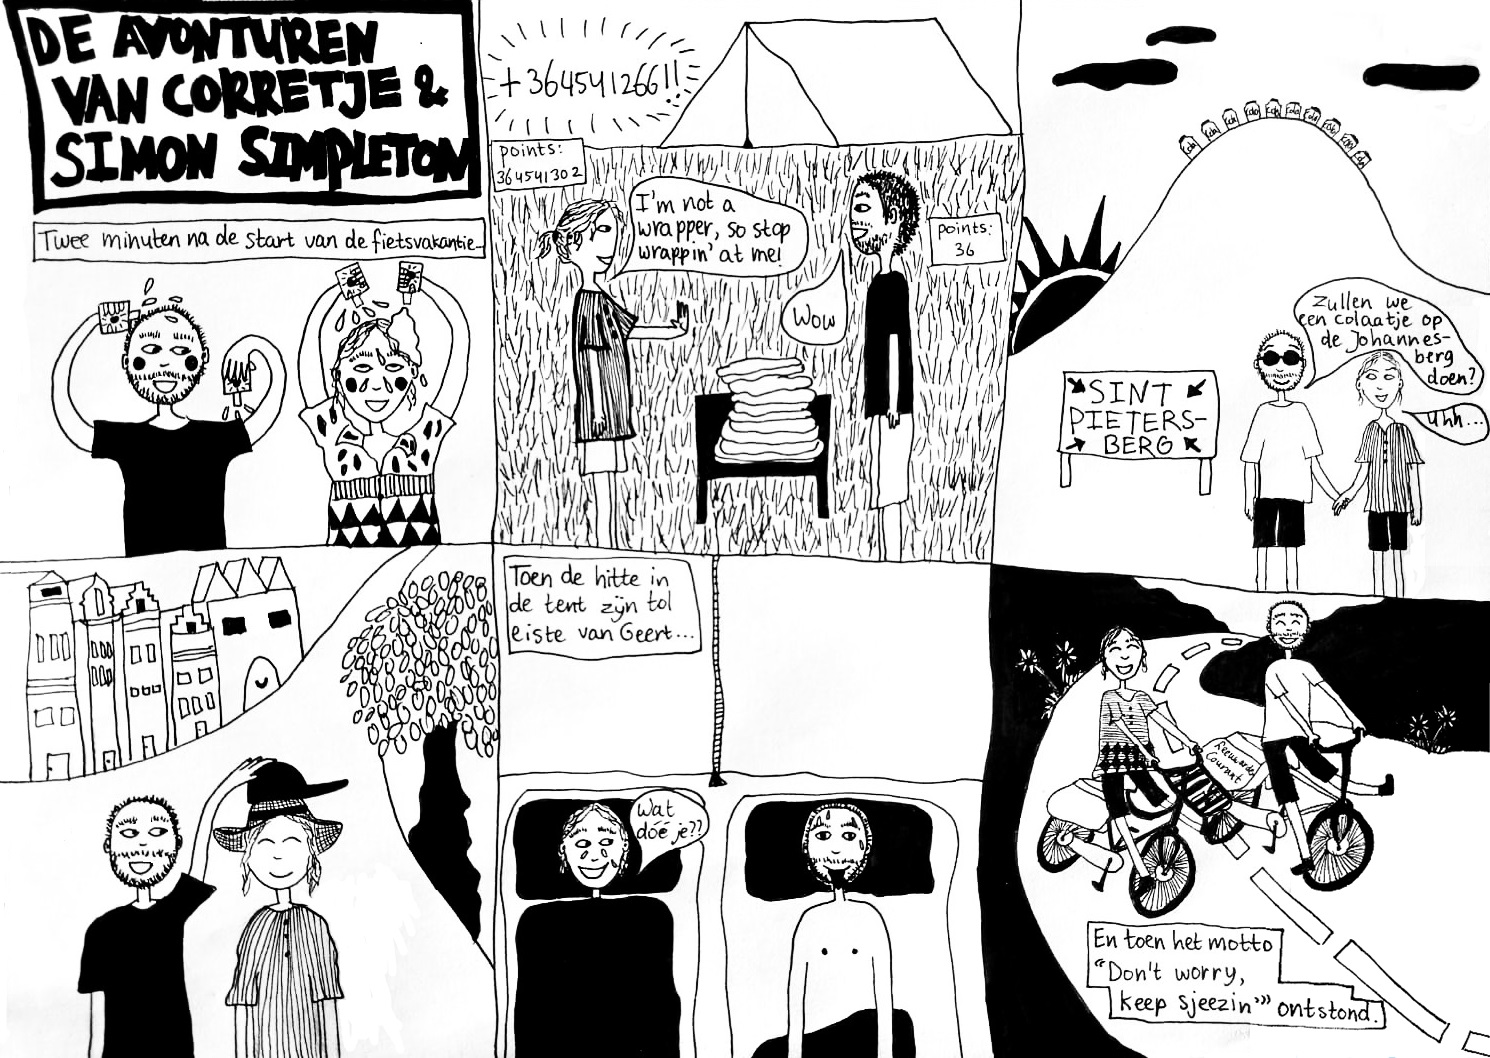 DE AVONTUREN
VAN CORRETJE &
SIMON SIMPLETON
Twee minuten na de start van de fietsvakantie...
+364541266!!
points:
364541302
I'm not a
wrapper, so stop
wrappin' at me!
Wow
points:
36
Zullen we
een colaatje op
de Johannes-
berg
doen?
Uhh...
SINT
PIETERS-
BERG
Toen de hitte in
de tent zijn tol
eiste van Geert...
Wat
doé je??
Leeuwarder
Courant
En toen het motto
"Don't worry,
keep sjeezin'" ontstond.